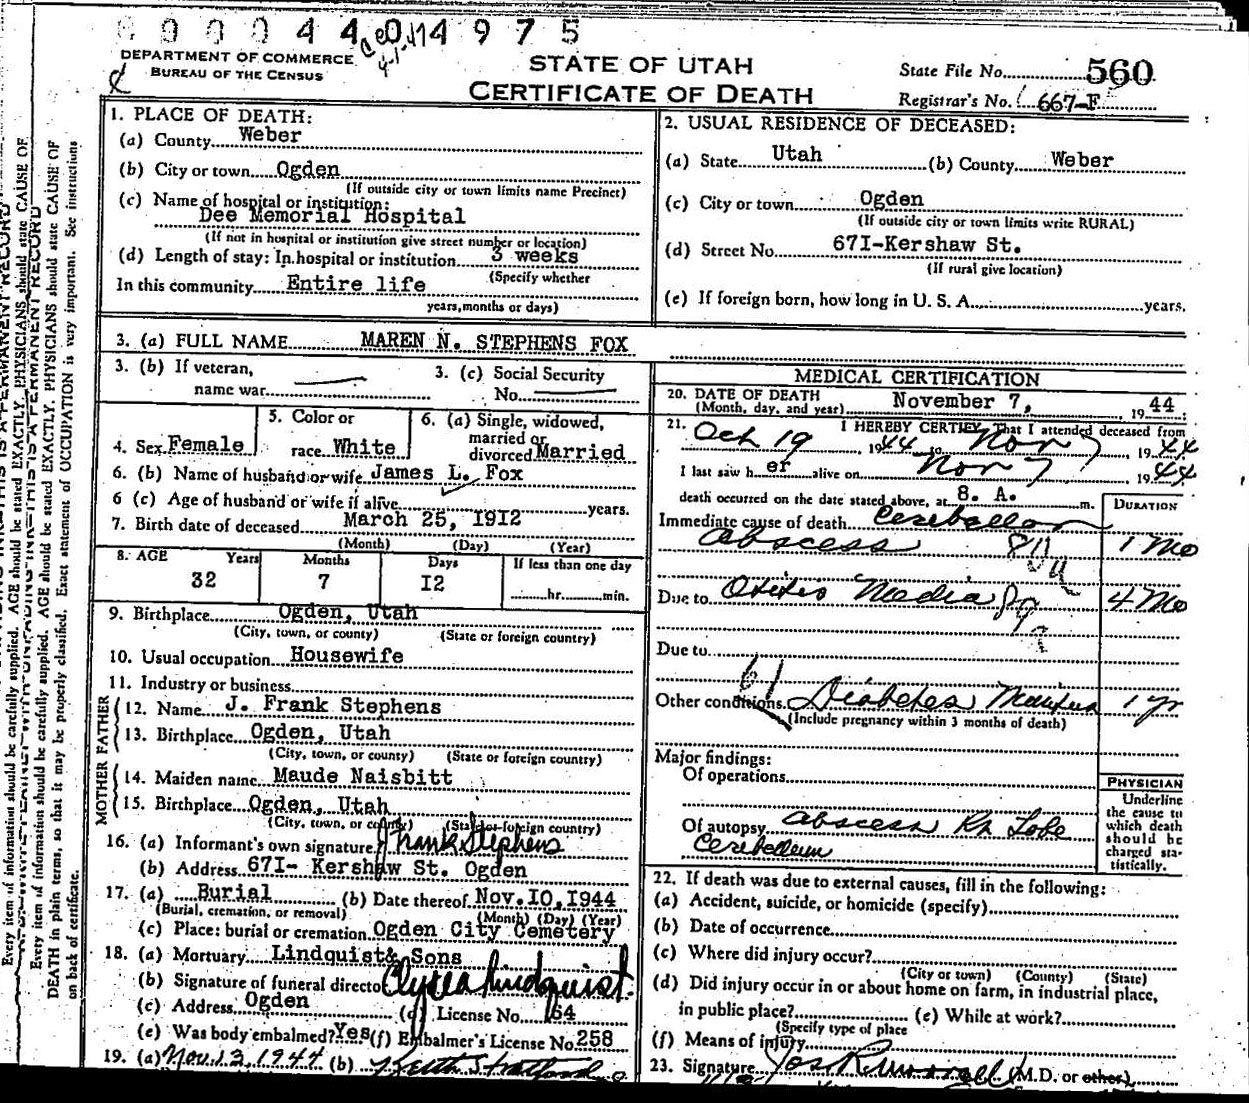 0 0 0 4 4 0 4 9 7 5
DEPARTMENT OF COMMERCE
BUREAU OF THE CENSUS
STATE OF UTAH
CERTIFICATE OF DEATH
State File No. 560
Registrar's No. 667-F
1. PLACE OF DEATH:
(a) County Weber
(b) City or town Ogden
(If outside city or town limits name Precinct)
(c) Name of hospital or institution:
Dee Memorial Hospital
(If not in hospital or institution give street number or location)
(d) Length of stay: In hospital or institution 3 weeks
(Specify whether
In this community Entire life
years, months or days)
2. USUAL RESIDENCE OF DECEASED:
(a) State Utah (b) County Weber
(c) City or town Ogden
(If outside city or town limits write RURAL)
(d) Street No. 67I-Kershaw St.
(If rural give location)
(e) If foreign born, how long in U. S. A. years.
3. (a) FULL NAME MAREN N. STEPHENS FOX
3. (b) If veteran,
name war
3. (c) Social Security
No.
4. Sex Female
5. Color or
race White
6. (a) Single, widowed,
married or
divorced Married
6. (b) Name of husband or wife James L. Fox
6 (c) Age of husband or wife if alive years.
7. Birth date of deceased March 25, I9I2
(Month) (Day) (Year)
8. AGE Years Months Days If less than one day
32 7 I2 hr. min.
9. Birthplace Ogden, Utah
(City, town, or county) (State or foreign country)
10. Usual occupation Housewife
11. Industry or business
FATHER
12. Name J. Frank Stephens
13. Birthplace Ogden, Utah
(City, town, or county) (State or foreign country)
MOTHER
14. Maiden name Maude Naisbitt
15. Birthplace Ogden, Utah
(City, town, or county) (State or foreign country)
16. (a) Informant's own signature Frank Stephens
(b) Address 67I- Kershaw St. Ogden
17. (a) Burial (b) Date thereof Nov. IO, I944
(Burial, cremation, or removal) (Month) (Day) (Year)
(c) Place: burial or cremation Ogden City Cemetery
18. (a) Mortuary Lindquist & Sons
(b) Signature of funeral director Lindquist
(c) Address Ogden (d) License No. 164
(e) Was body embalmed? Yes (f) Embalmer's License No. 258
19. (a) Nov. 13, 1944 (b) Keith Stratford
MEDICAL CERTIFICATION
20. DATE OF DEATH
(Month, day, and year) November 7, 19 44
21. I HEREBY CERTIFY, That I attended deceased from
Oct 19, 1944 to Nov 7, 1944
I last saw h er alive on Nov 7, 1944
death occurred on the date stated above, at 8. A. m.
DURATION
Immediate cause of death Cerebellar
abscess 1 Mo
Due to Otitis Media 4 Mo
Due to
61
Other conditions Diabetes Mellitus 1 yr
(Include pregnancy within 3 months of death)
Major findings:
Of operations
Of autopsy abscess Rt Lobe
Cerebellum
PHYSICIAN
Underline
the cause to
which death
should be
charged sta-
tistically.
22. If death was due to external causes, fill in the following:
(a) Accident, suicide, or homicide (specify)
(b) Date of occurrence
(c) Where did injury occur?
(City or town) (County) (State)
(d) Did injury occur in or about home on farm, in industrial place,
in public place? (e) While at work?
(Specify type of place
(f) Means of injury
23. Signature (M.D. or other)
Every item of information should be carefully supplied. AGE should be stated EXACTLY. PHYSICIANS should state CAUSE OF
DEATH in plain terms, so that it may be properly classified. Exact statement of OCCUPATION is very important. See instructions
on back of certificate.